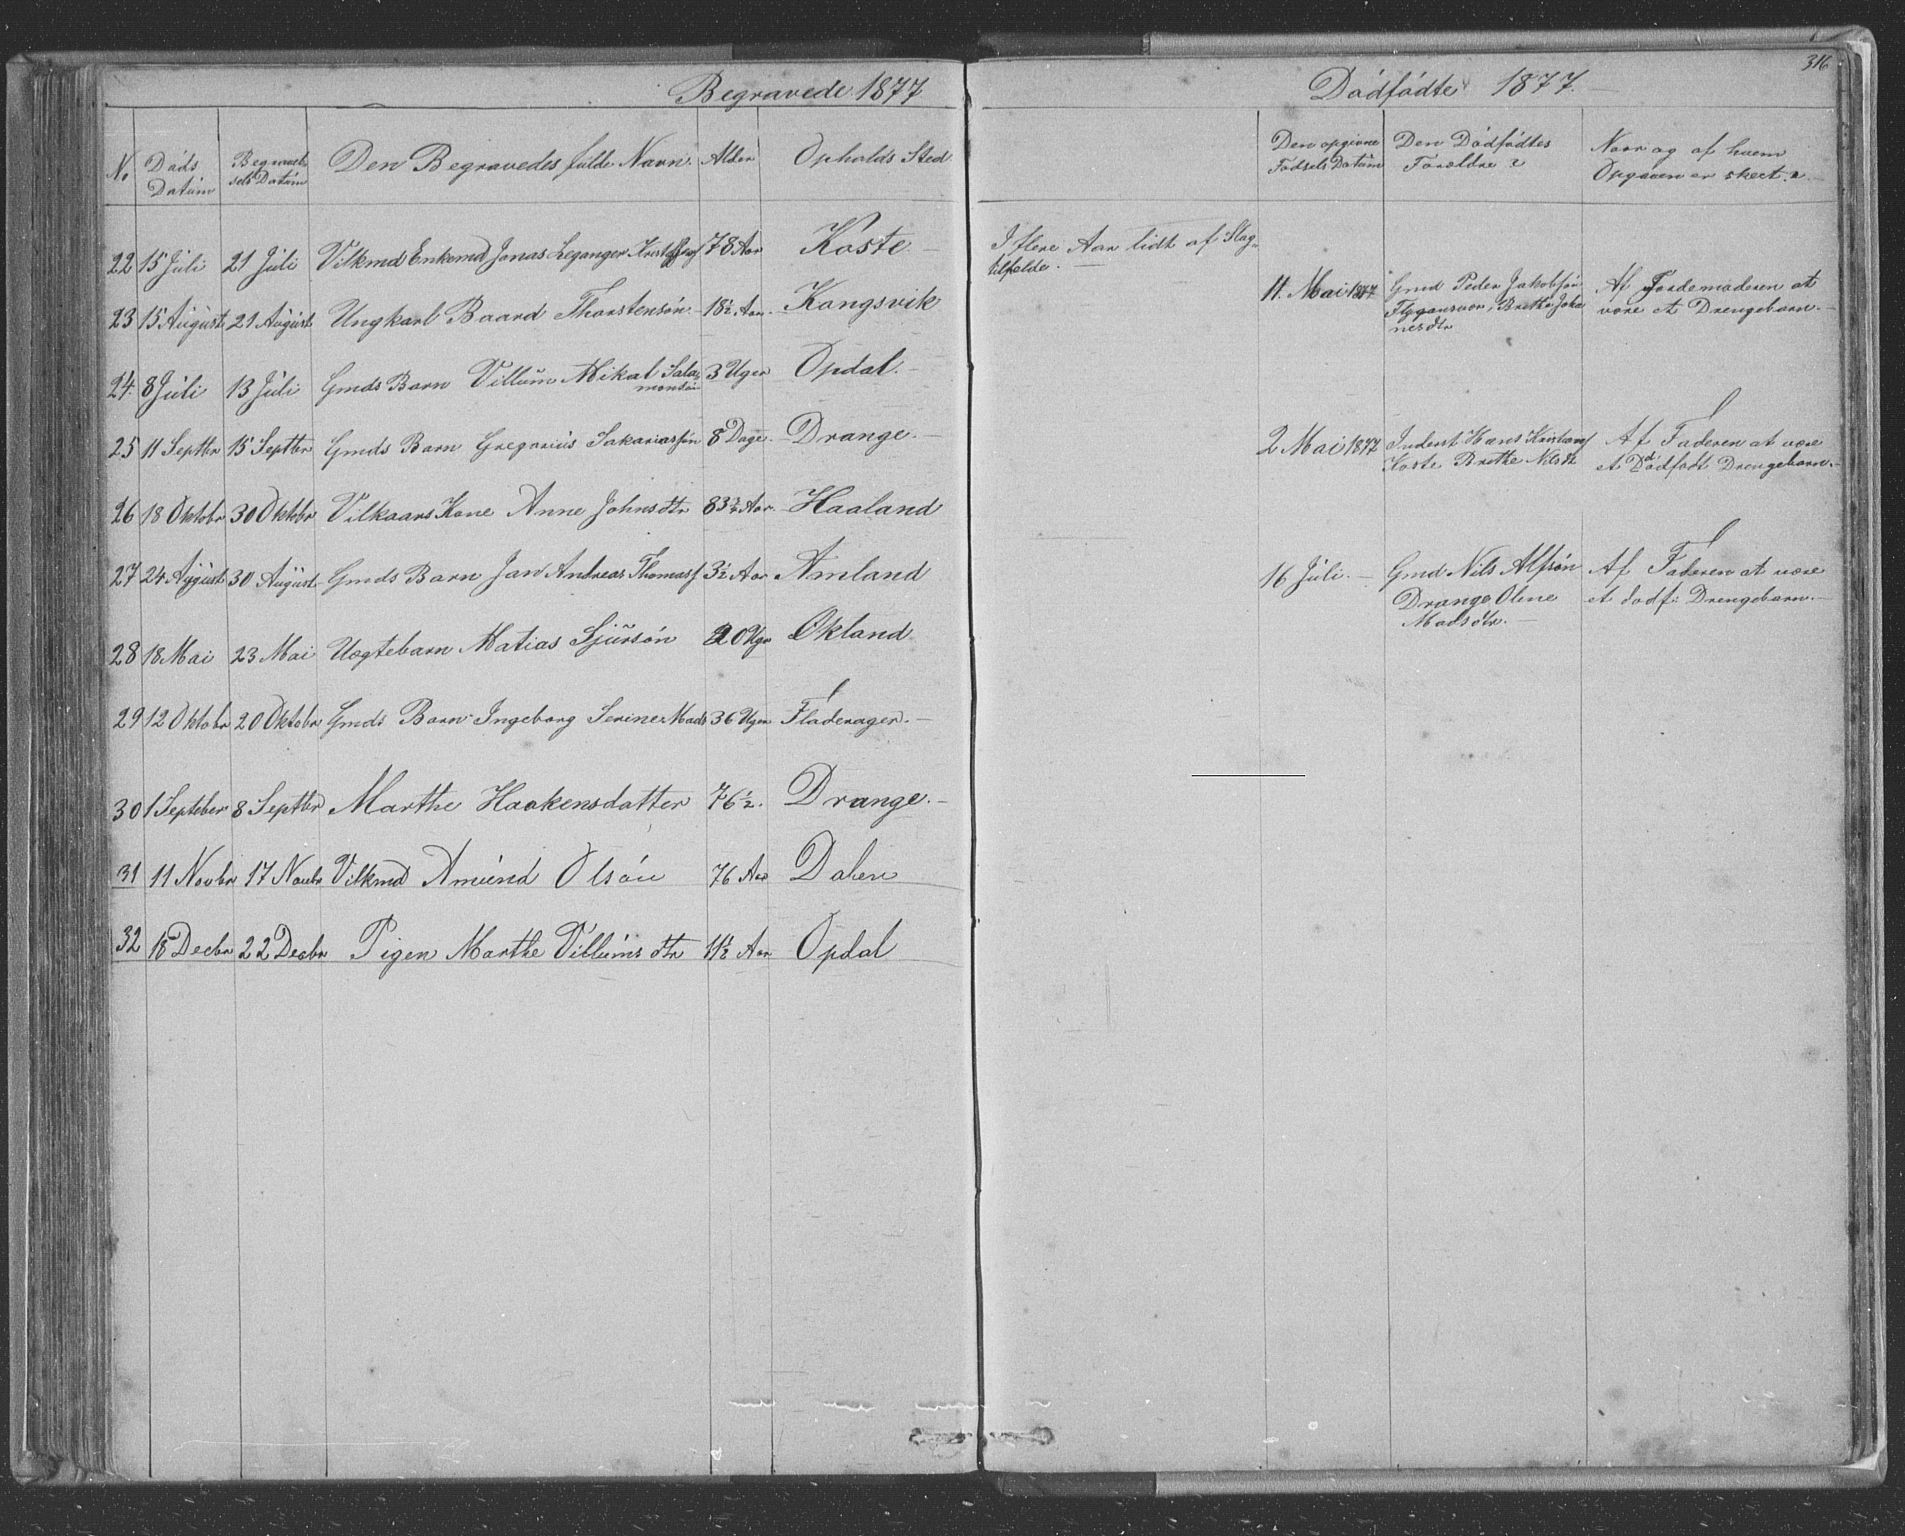 Begravede 1877
No Döds Datum Begravelsels Datum Den Begravedes fulde Navn. Alder Opholds Sted
22 15 Juli 21 Juli Vilkmd Enkemd Jonas Leganger 78 Aar Koste
23 15 August 21 August Ungkarl Baard Thorstensön 18½ Aar. Kongsvik
24. 8 Juli 13 Juli Gmds Barn Villum Mikal Salamonsön 3 Uger Opdal.
25 11 Septbr 15 Septbr Gmds Barn Gregorius Sakariassön 8 Dage. Drange.
26 18 Oktobr 30 Oktobr Vilkaars Kone Anne Johnsdtr 83½ Aar. Haaland
27 24 August 30 August Gmds Barn Jan Andreas Thomass. 3½ Aar Amland
28 18 Mai 23 Mai Uægtebarn Matias Sjürsön 20 Ugr Økland
29 12 Oktobr 20 Oktobr Gmds Barn Ingeborg Serine Mads 36 Uger Fladerager.
30 1 September 8 Septbr Marthe Haakensdatter 76½. Drange.
31 11 Novbr 17 Novbr Vilkmd Amund Olsön 76 Aar Dalen
32 18 Decbr 22 Decbr Pigen Marthe Villumsdtr 11½ Aar Opdal
316
Dödfödte 1877.
Den opgivne Födsels Datum Den Dödfödtes Forældre? Naar og af hvem Opgaven er skeet?
I flere Aar lidt af Slag-
tilfælde.
11. Mai 1877 Gmd Peder Jakobsön Af Jordemoderen at
Brethe Johanesdtr være et Drengebarn.
2 Mai 1877 Inderst Hans Af Faderen at være
Koste Brethe Nilsdt et Dödfödt Drengebarn.
16 Juli. Gmd Nils Alfsön Af Faderen at være
Drange Oline et dödf: Drengebarn.
Madsdtr.